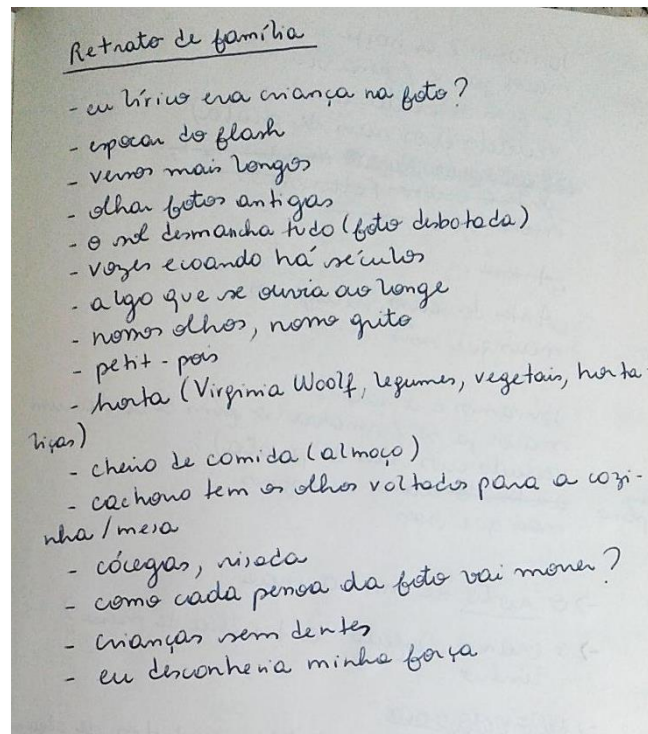 Retrato de família
- eu lírico era criança na foto?
- espocar do flash
- versos mais longos
- olhar fotos antigas
- o sol desmancha tudo (foto desbotada)
- vozes ecoando há séculos
- algo que se ouvia ao longe
- nossos olhos, nosso grito
- petit-pois
- horta (Virginia Woolf, legumes, vegetais, horta-
liças)
- cheiro de comida (almoço)
- cachorro tem os olhos voltados para a cozi-
nha/mesa
- cócegas, risada
- como cada pessoa da foto vai morrer?
- crianças sem dentes
- eu desconhecia minha força